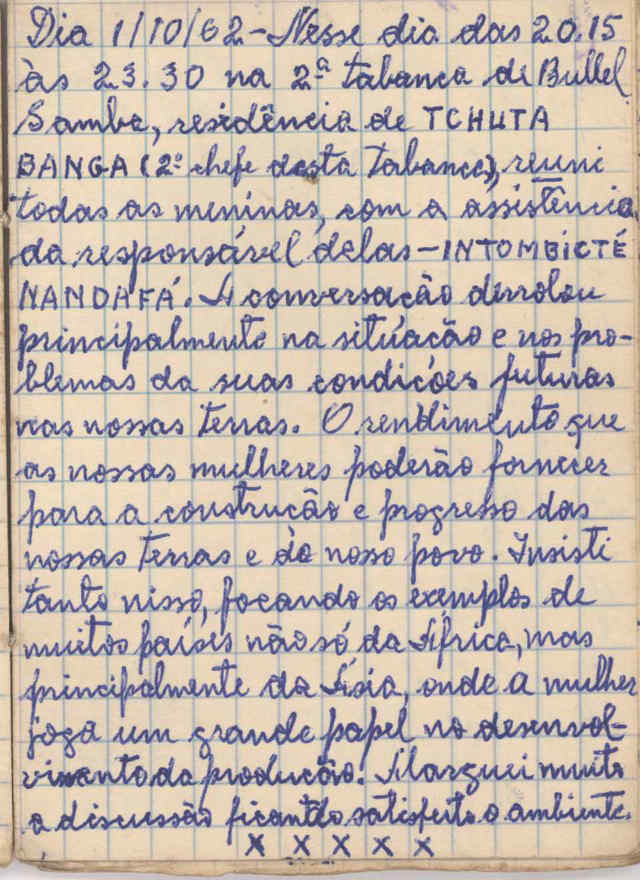 Dia 1/10/62 - Nesse dia das 20.15
às 23.30 na 2ª tabanca de Bullel
Samba, residência de TCHUTA
BANGA (2º chefe desta tabanca), reuni
todas as meninas, com a assistência
da responsável delas - INTOMBICTÉ
NANDAFÁ. A conversação derrolou
principalmente na situação e nos pro-
blemas da suas condições futuras
nas nossas terras. O rendimento que
as nossas mulheres poderão fornecer
para a construção e progresso das
nossas terras e do nosso povo. Insisti
tanto nisso, focando os exemplos de
muitos países não só da África, mas
principalmente da Ásia, onde a mulher
joga um grande papel no desenvol-
vimento da produção. Alarguei muito
a discussão ficando satisfeito o ambiente.
x x x x x